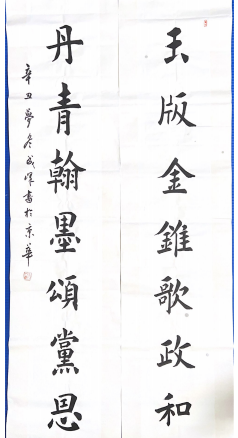 玉版金錐歌政和
丹青翰墨頌黨恩
辛丑夢冬成暉書於京華